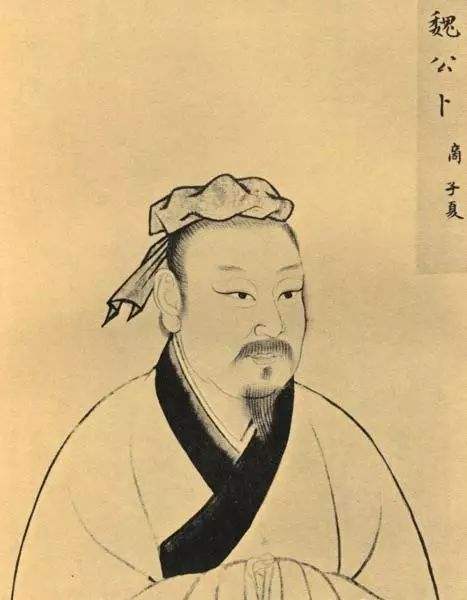 魏公卜
商子夏